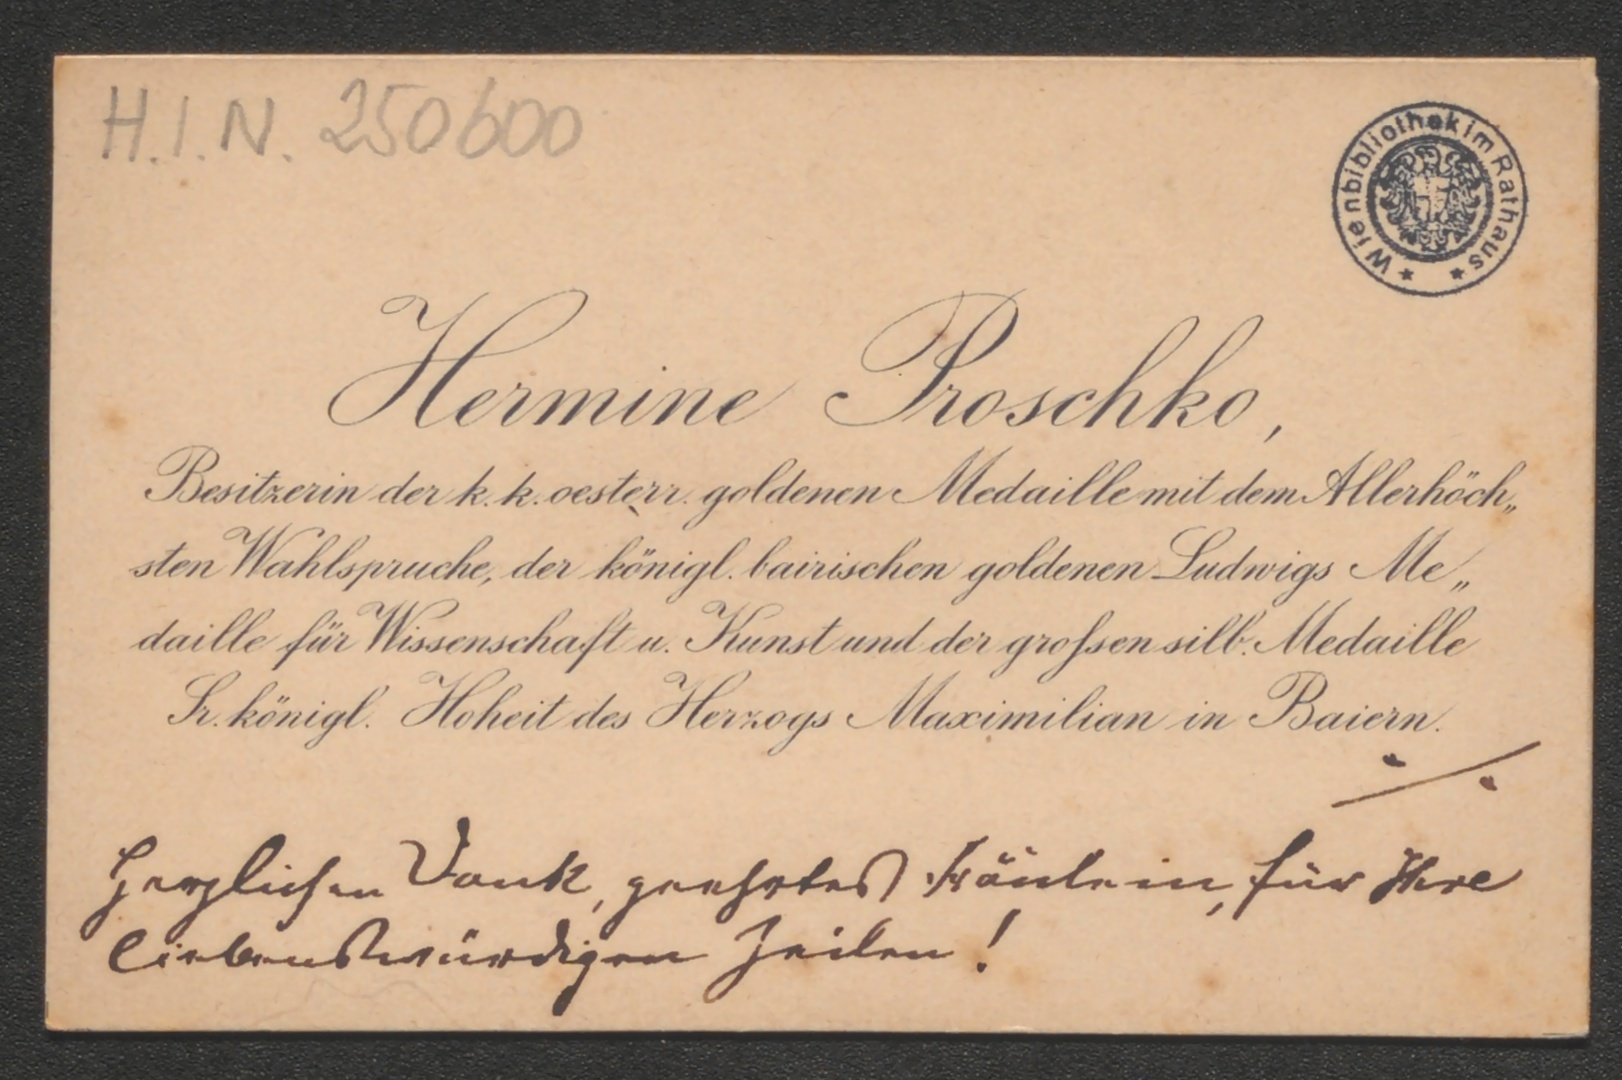 H.I.N. 250600
Wienbibliothek im Rathaus
Hermine Proschko,
Besitzerin der k. k. oesterr. goldenen Medaille mit dem Allerhöch„
sten Wahlspruche, der königl. bairischen goldenen Ludwigs Me„
daille für Wissenschaft u. Kunst und der großen silb. Medaille
Sr. königl. Hoheit des Herzogs Maximilian in Baiern.
./.
Herzlichen Dank, geehrtes Fräulein, für Ihre
liebenswürdigen Zeilen!